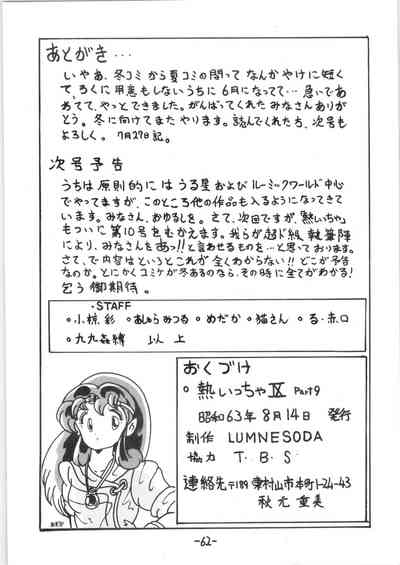 あとがき…
いやあ、冬コミから夏コミの間ってなんかやけに短く
て、ろくに用意もしないうちに6月になってて…急いであ
わてて、やっとできました。がんばってくれたみなさんありが
とう。冬に向けてまたやります。読んでくれた方、次号も
よろしく。 7月27日記。
次号予告
うちは原則的にはうる星およびルーミックワールド中心
でやってますが、このところ他の作品も入るようになってきて
います。みなさん、おゆるしを。さて、次回ですが、「熱いっちゃ」
もついに第10号をむかえます。我らが超ド級、執筆陣
により、みなさんをあっ!!と言わせるものを…と思っております。
さて、で内容はというとこれが全くわからない!! どこが予告
なのか。とにかくコミケが冬あるのなら、その時に全てがわかる!
乞う御期待。
・STAFF
○小椋 彩 ○あしゅらみつる ○めだか ○猫さん ○る・赤口
○九九 以上
おくづけ
○熱いっちゃIX Part9
昭和63年8月14日 発行
制作 LUMNESODA
協力 T.B.S
連絡先〒189 東村山市本町1-24-43
秋元重美
-62-